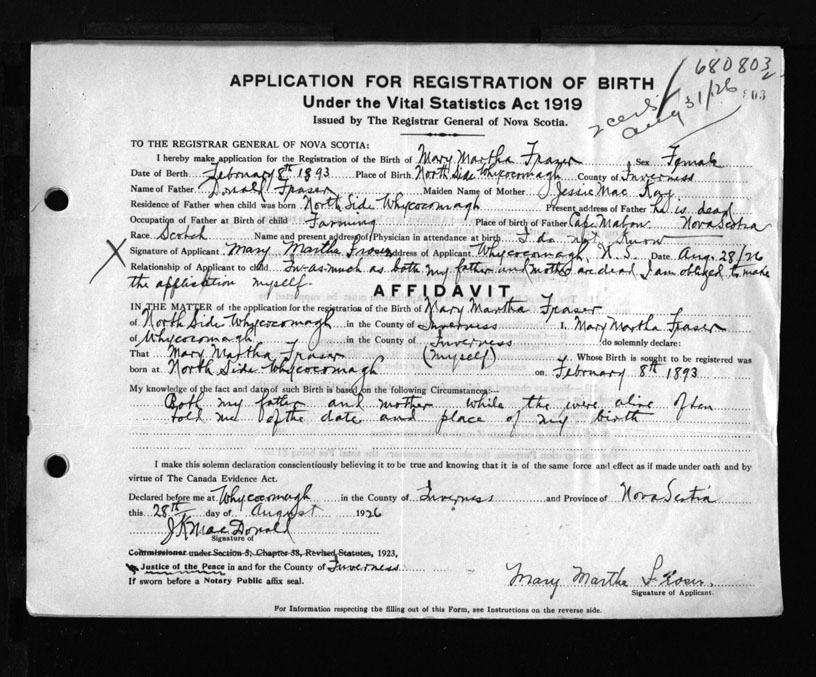 680803
2 certs
Aug 31/26
803
APPLICATION FOR REGISTRATION OF BIRTH
Under the Vital Statistics Act 1919
Issued by The Registrar General of Nova Scotia.
TO THE REGISTRAR GENERAL OF NOVA SCOTIA:
I hereby make application for the Registration of the Birth of Mary Martha Frazer Sex Female
Date of Birth February 8th 1893 Place of Birth North Side Whycocomagh County of Inverness
Name of Father Donald Fraser Maiden Name of Mother Jessie Mac
Residence of Father when child was born North Side Whycocomagh Present address of Father he is dead
Occupation of Father at Birth of child Farming Place of birth of Father Cape Mabou Nova Scotia
Race Scotch Name and present address of Physician in attendance at birth I do not know
X Signature of Applicant Mary Martha Fraser Address of Applicant Whycocomagh, N.S. Date Aug. 28/26
Relationship of Applicant to child In-as-much as both my father and mother are dead I am obliged to make
the application myself.
AFFIDAVIT
IN THE MATTER of the application for the registration of the Birth of Mary Martha Fraser
of North Side Whycocomagh in the County of Inverness I, Mary Martha Fraser
of Whycocomagh in the County of Inverness do solemnly declare:
That Mary Martha Fraser (myself) Whose Birth is sought to be registered was
born at North Side Whycocomagh on February 8th 1893
My knowledge of the fact and date of such Birth is based on the following Circumstances:—
Both my father and mother while the were alive often
told me of the date and place of my birth
I make this solemn declaration conscientiously believing it to be true and knowing that it is of the same force and effect as if made under oath and by
virtue of The Canada Evidence Act.
Declared before me at Whycocomagh in the County of Inverness and Province of Nova Scotia
this 28th day of August 1926
J K MacDonald
Signature of
Commissioner under Section 3, Chapter 38, Revised Statutes, 1923,
Justice of the Peace in and for the County of Inverness
If sworn before a Notary Public affix seal.
Mary Martha Fraser.
Signature of Applicant.
For Information respecting the filling out of this Form, see Instructions on the reverse side.